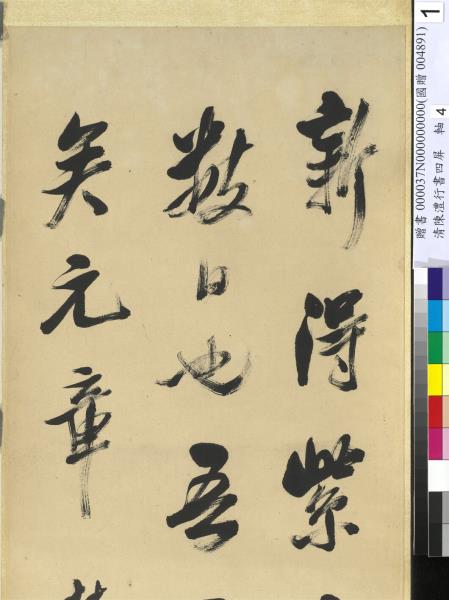 新得紫
數日也吾
矣元章
贈書 000037N000000000(國贈 004891)
清陳澧行書四屏 軸 4
1